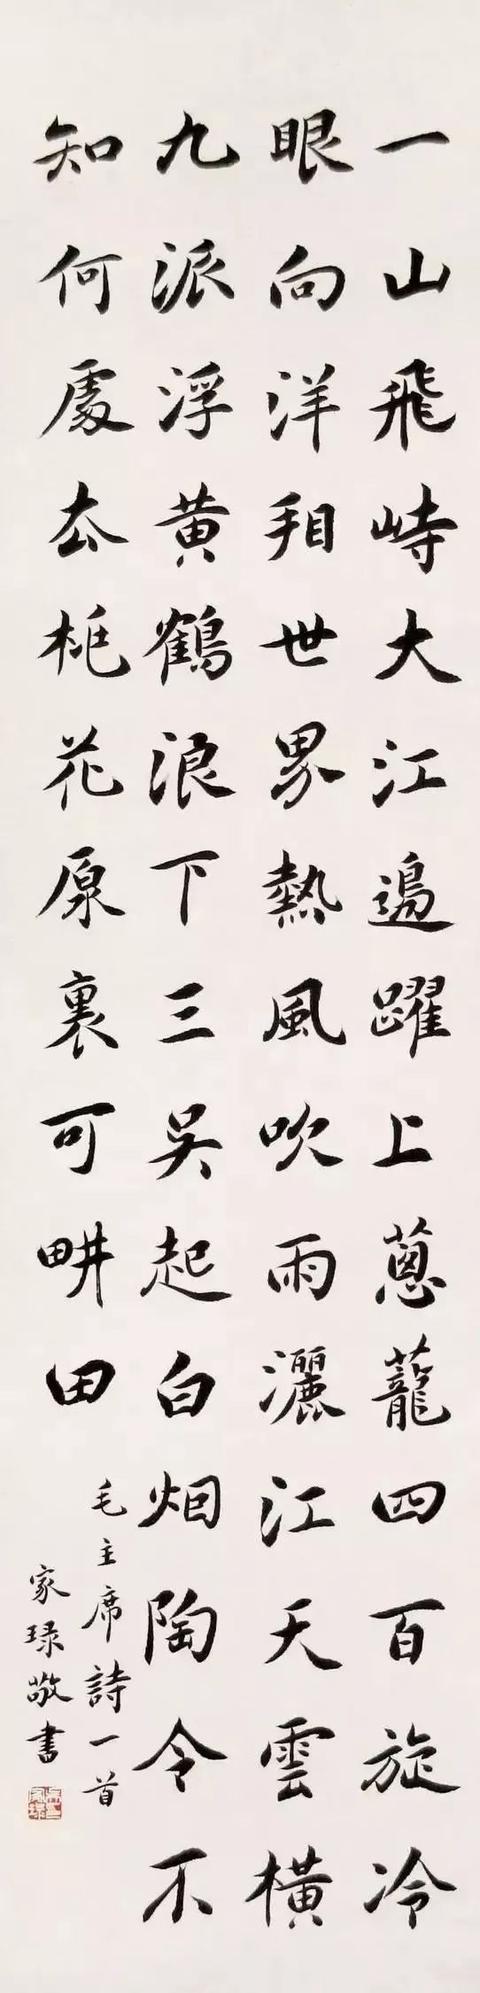 一山飛峙大江邊躍上蔥蘢四百旋冷
眼向洋看世界熱風吹雨灑江天雲橫
九派浮黃鶴浪下三吳起白烟陶令不
知何處去桃花源裏可畊田
毛主席詩一首
家琭敬書